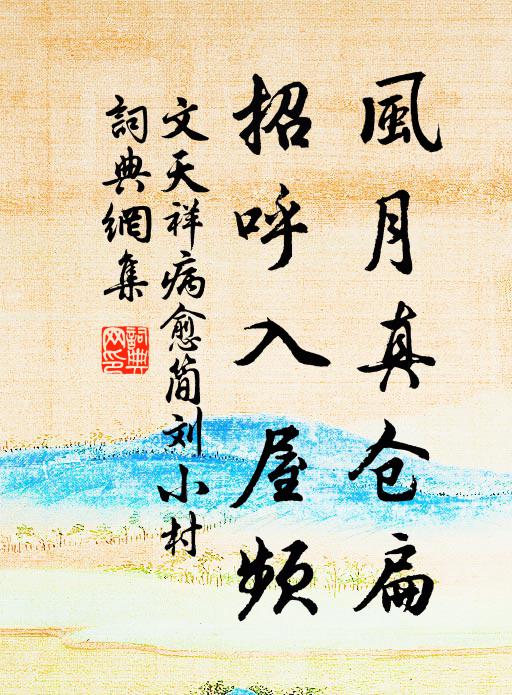 風月真仓扁
招呼入屋頻
文天祥病愈简刘小村
詞典網集
詞典
网印